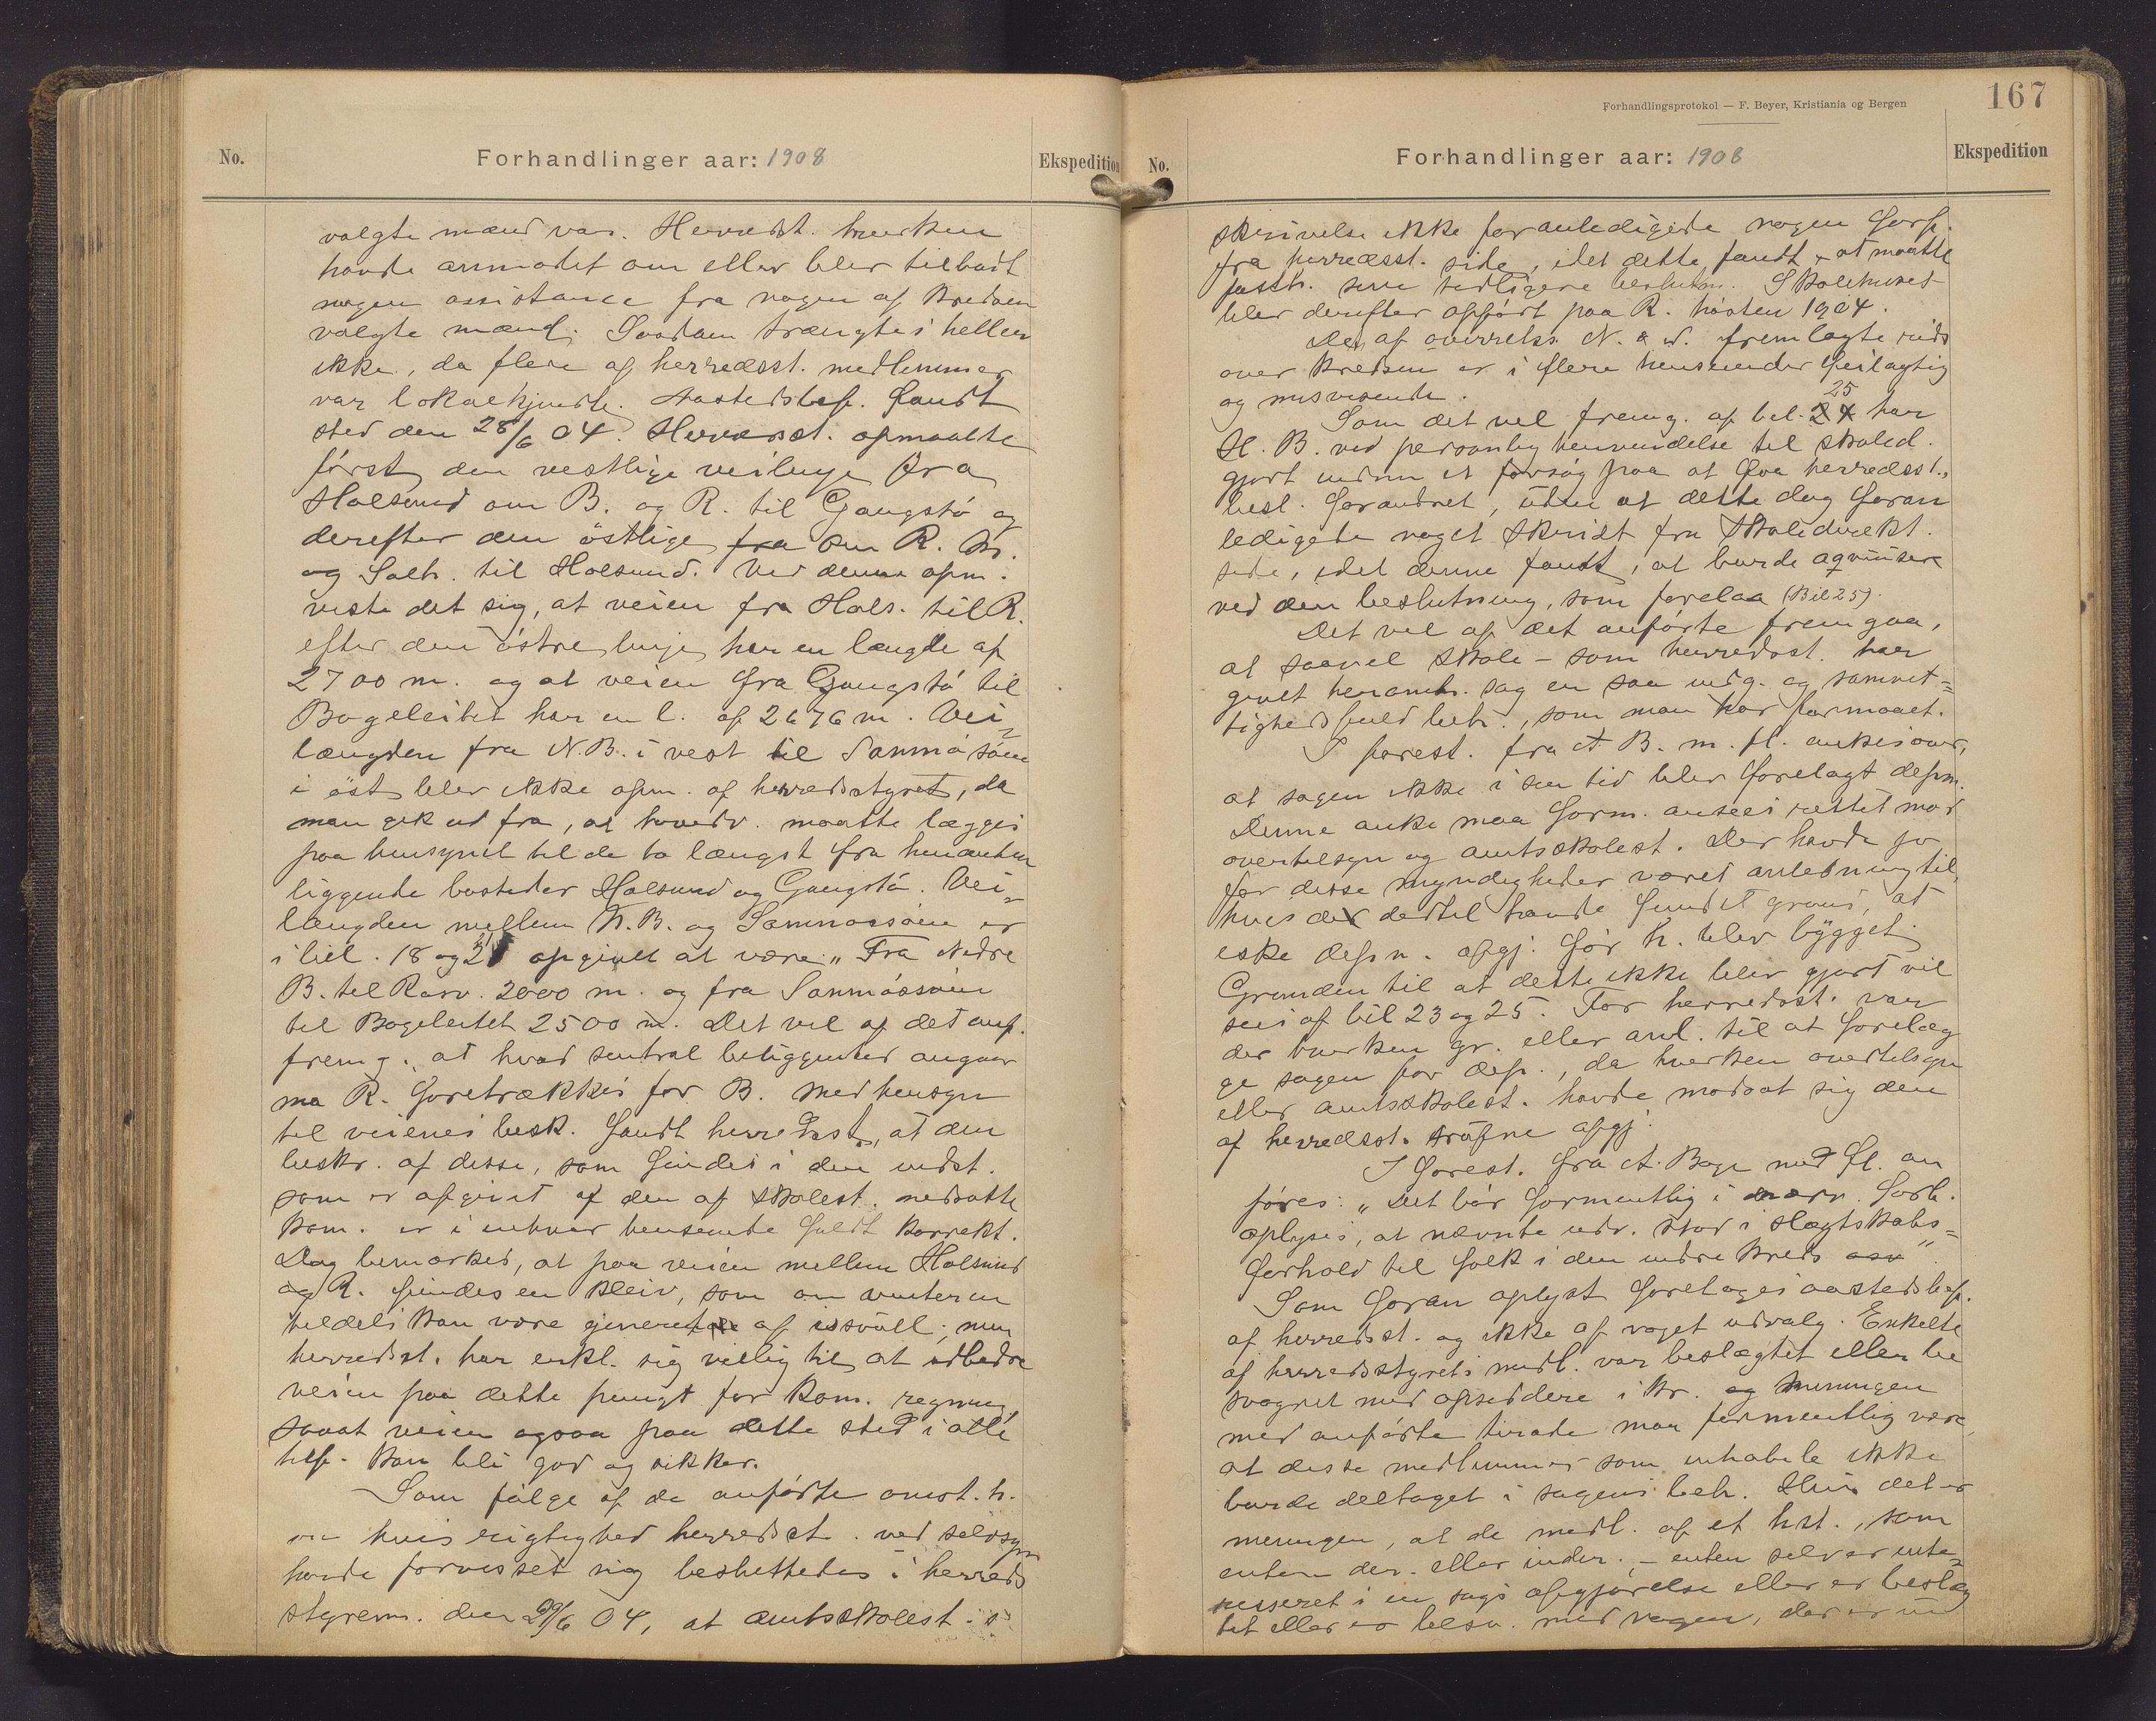 No.
Forhandlinger aar: 1908
Ekspedition
valgte mænd var. Herredst. hverken
havde anmodet om eller blev tilbudt
nogen assistance fra nogen af kredsen
valgte mænd. Saadan trængtes heller
ikke, da flere af herredsst. medlemmer
var lokalkjendte. Aastedsbef. fandt
sted den 28/6 04. Herredsst. opmaalte
först den vestlige veilinje fra
Holsund om B. og R. til Gangstö og
derefter den östlige fra om R. Br.
og Saltr. til Holsund. Ved denne opm.
viste det sig, at veien fra Hols. til R.
efter den östre linje har en længde af
2700 m. og at veien fra Gangstö til
Bogeleitet har en l. af 2676 m. Vei=
længden fra N.B. i vest til Sanmösöen
i öst blev ikke opm. af herredsstyret, da
man gik ud fra, at hovedv. maatte lægges
paa hensynet til de to længst fra hinanden
liggende bosteder Holsund og Gangstö. Vei=
længden mellem N.B. og Sanmössöen er
i bil. 18 og 21 opgivet at være: „Fra Nedre
B. til Rarv. 2000 m. og fra Sanmössöen
til Bogeleitet 2500 m. Det vil af det anf.
fremg., at hvad sentral beliggenhed angaar
maa R. foretrækkes for B. Med hensyn
til veienes besk. fandt herredsst, at den
beskr. af disse, som findes i den indst.
som er afgivet af den af skolest. nedsatte
kom. er i enhver henseende fuldt korrekt.
Dog bemærkes, at paa veien mellem Holsund
og R. findes en kleiv, som om vinteren
tildels kan være generet af issvull; men
herredsst. har erkl. sig villig til at udbedre
veien paa dette pungt for kom. regning,
saaat veien ogsaa paa dette sted i alle
tilf. kan bli god og sikker.
Som fölge af de anförte omst. h.
om hvis rigtighed herredsst. ved selvsyn
havde forvisset sig besluttedes i herreds
styrem. den 29/6 04, at amtsskolest.s
Forhandlingsprotokol — F. Beyer, Kristiania og Bergen
167
No.
Forhandlinger aar: 1908
Ekspedition
skrivelse ikke foranledigede nogen forf.
fra herredsst. side, idet dette fandt at maatte
fasth. sine tidligere beslutn. Skolehuset
blev derefter opfört paa R. hösten 1904.
Det af overrets. N. a. d. fremlagte rids
over kredsen er i flere henseender feilagtig
og misvisende.
Som det vil fremg. af bil. 25 har
H. B. ved personlig henvendelse til skoled.
gjort endnu et forsög paa at faa herredsst.,
besl. forandret, uden at dette dog foran
ledigede noget skridt fra skoledirekt.
side, idet denne fandt, at burde aqviisere
ved den beslutning, som forelaa (Bil 25).
Det vil af det anförte fremgaa,
at saavel skole- som herredsst. har
givet heromh. sag en saa indg. og samvit=
tighedsfuld beh., som man har formaaet.
I forest. fra A. B. m. fl. ankes over,
at sagen ikke i sin tid blev forelagt depm.
Denne anke maa form. ansees rettet mod
overtilsyn og amtsskolest. Der havde jo
for disse myndigheder været anledning til,
hvis der dertil havde fundet grund, at
eske depm. afgj. för h. blev bygget.
Grunden til at dette ikke blev gjort vil
sees af bil 23 og 25. For herredsst. var
der hverken gr. eller anl. til at forelæg
ge sagen for dep., da hverken overtilsyn
eller amtsskolest. havde modsat sig den
af herredsst. trufne afgj.
I forest. fra A. Boge med fl. an
föres: „Det bör formentlig i nærv. forb.
oplyses, at nævnte udv. stod i slægtskabs=
forhold til folk i den indre kreds osv“.
Som foran oplyst foretoges aastedsbef.
af herredsst. og ikke af noget udvalg. Enkelte
af herredsstyrets medl. var beslægtet eller be
svogret med opsiddere i kr. og meningen
med anförte tirade maa formentlig være
at disse medlemmer som inhabile ikke
burde deltaget i sagens beh. Hvis det er
meningen, at de medl. af et hst., som
enten der. eller inder. – enten selv er inte=
resseret i en sags afgjörelse eller er beslæg
tet eller er besv. med nogen, der er in